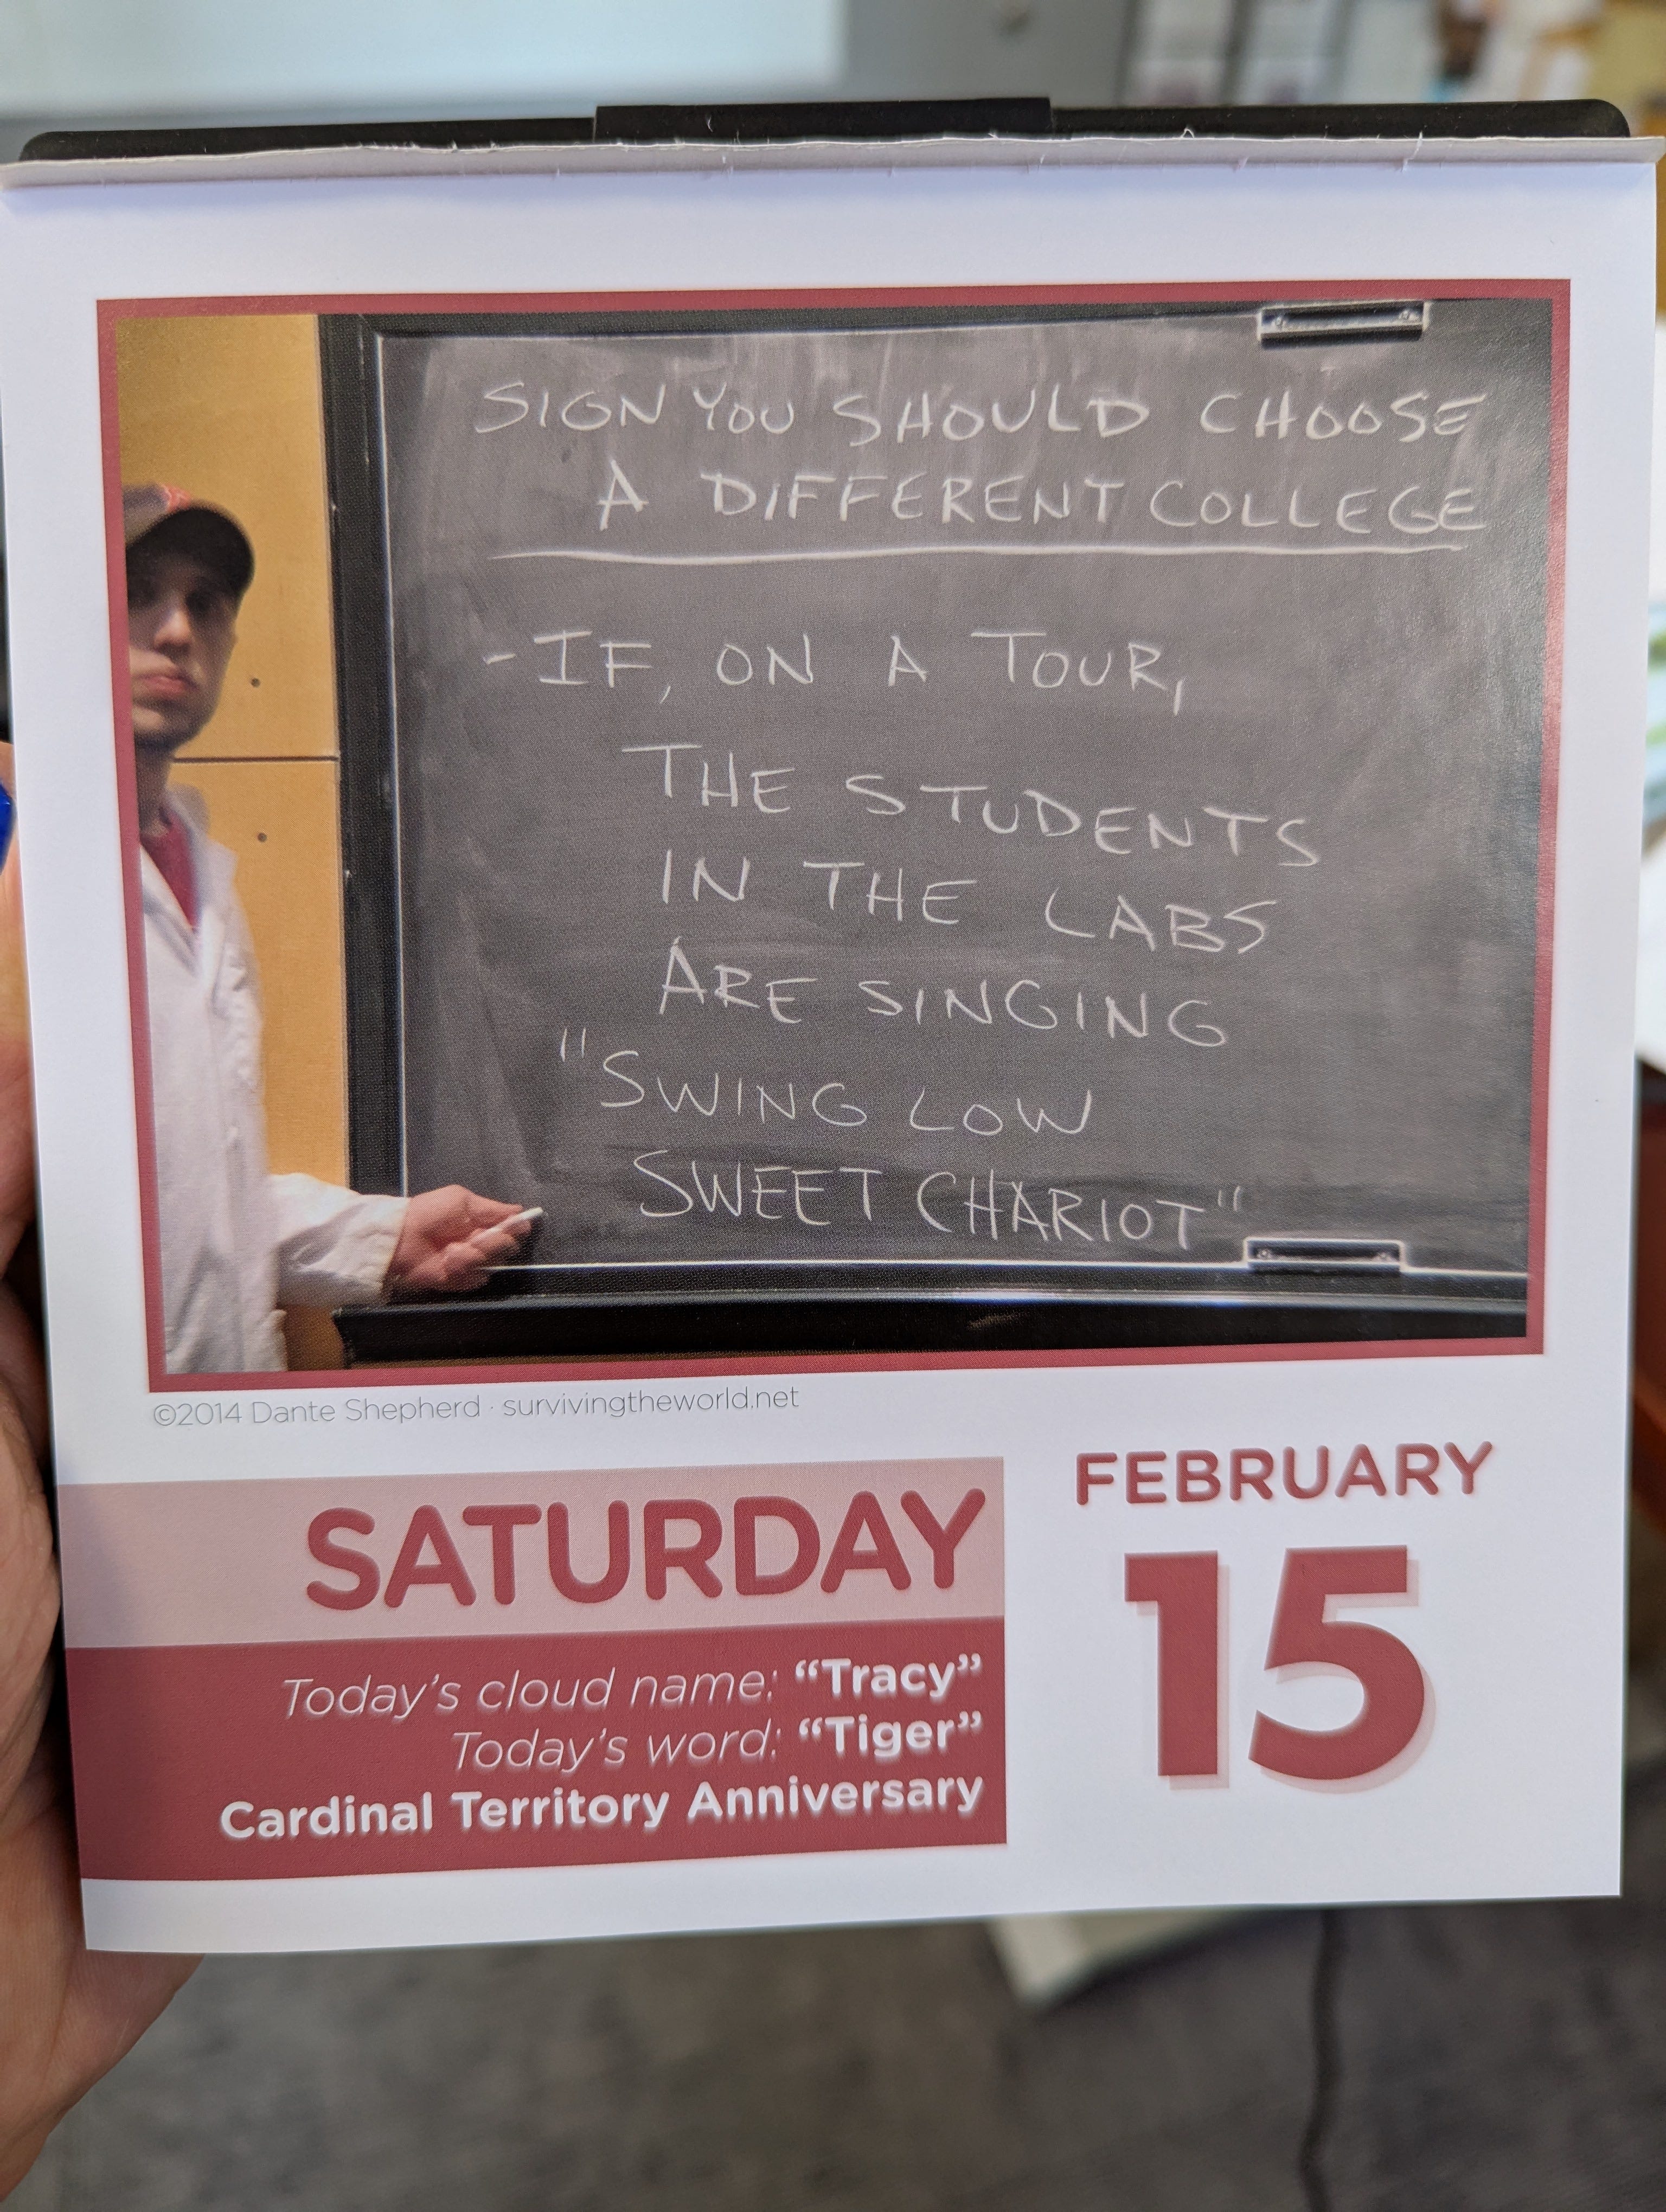 SIGN YOU SHOULD CHOOSE
A DIFFERENT COLLEGE
- IF, ON A TOUR,
THE STUDENTS
IN THE LABS
ARE SINGING
"SWING LOW
SWEET CHARIOT"
©2014 Dante Shepherd · survivingtheworld.net
SATURDAY
Today's cloud name: “Tracy”
Today's word: “Tiger”
Cardinal Territory Anniversary
FEBRUARY
15